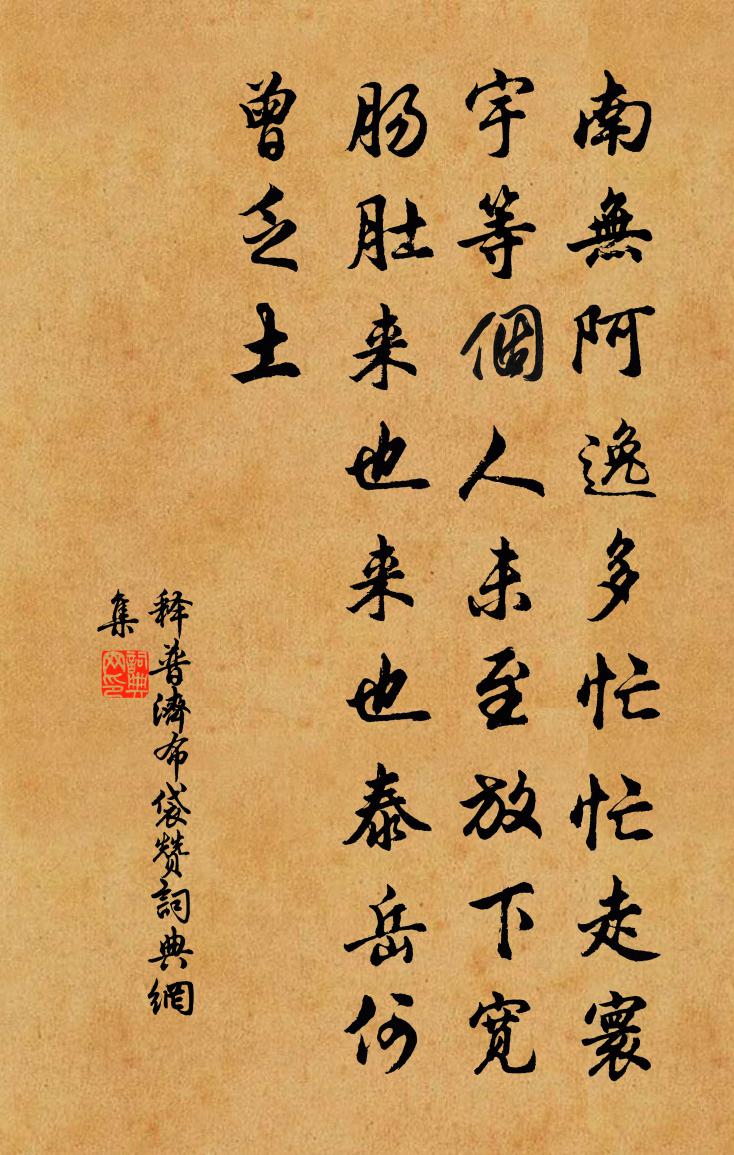 南無阿逸多忙忙走寰
宇等個人未至放下寬
肠肚来也来也泰岳何
曾乏土
释普濟布袋赞詞典網
集
詞典网印